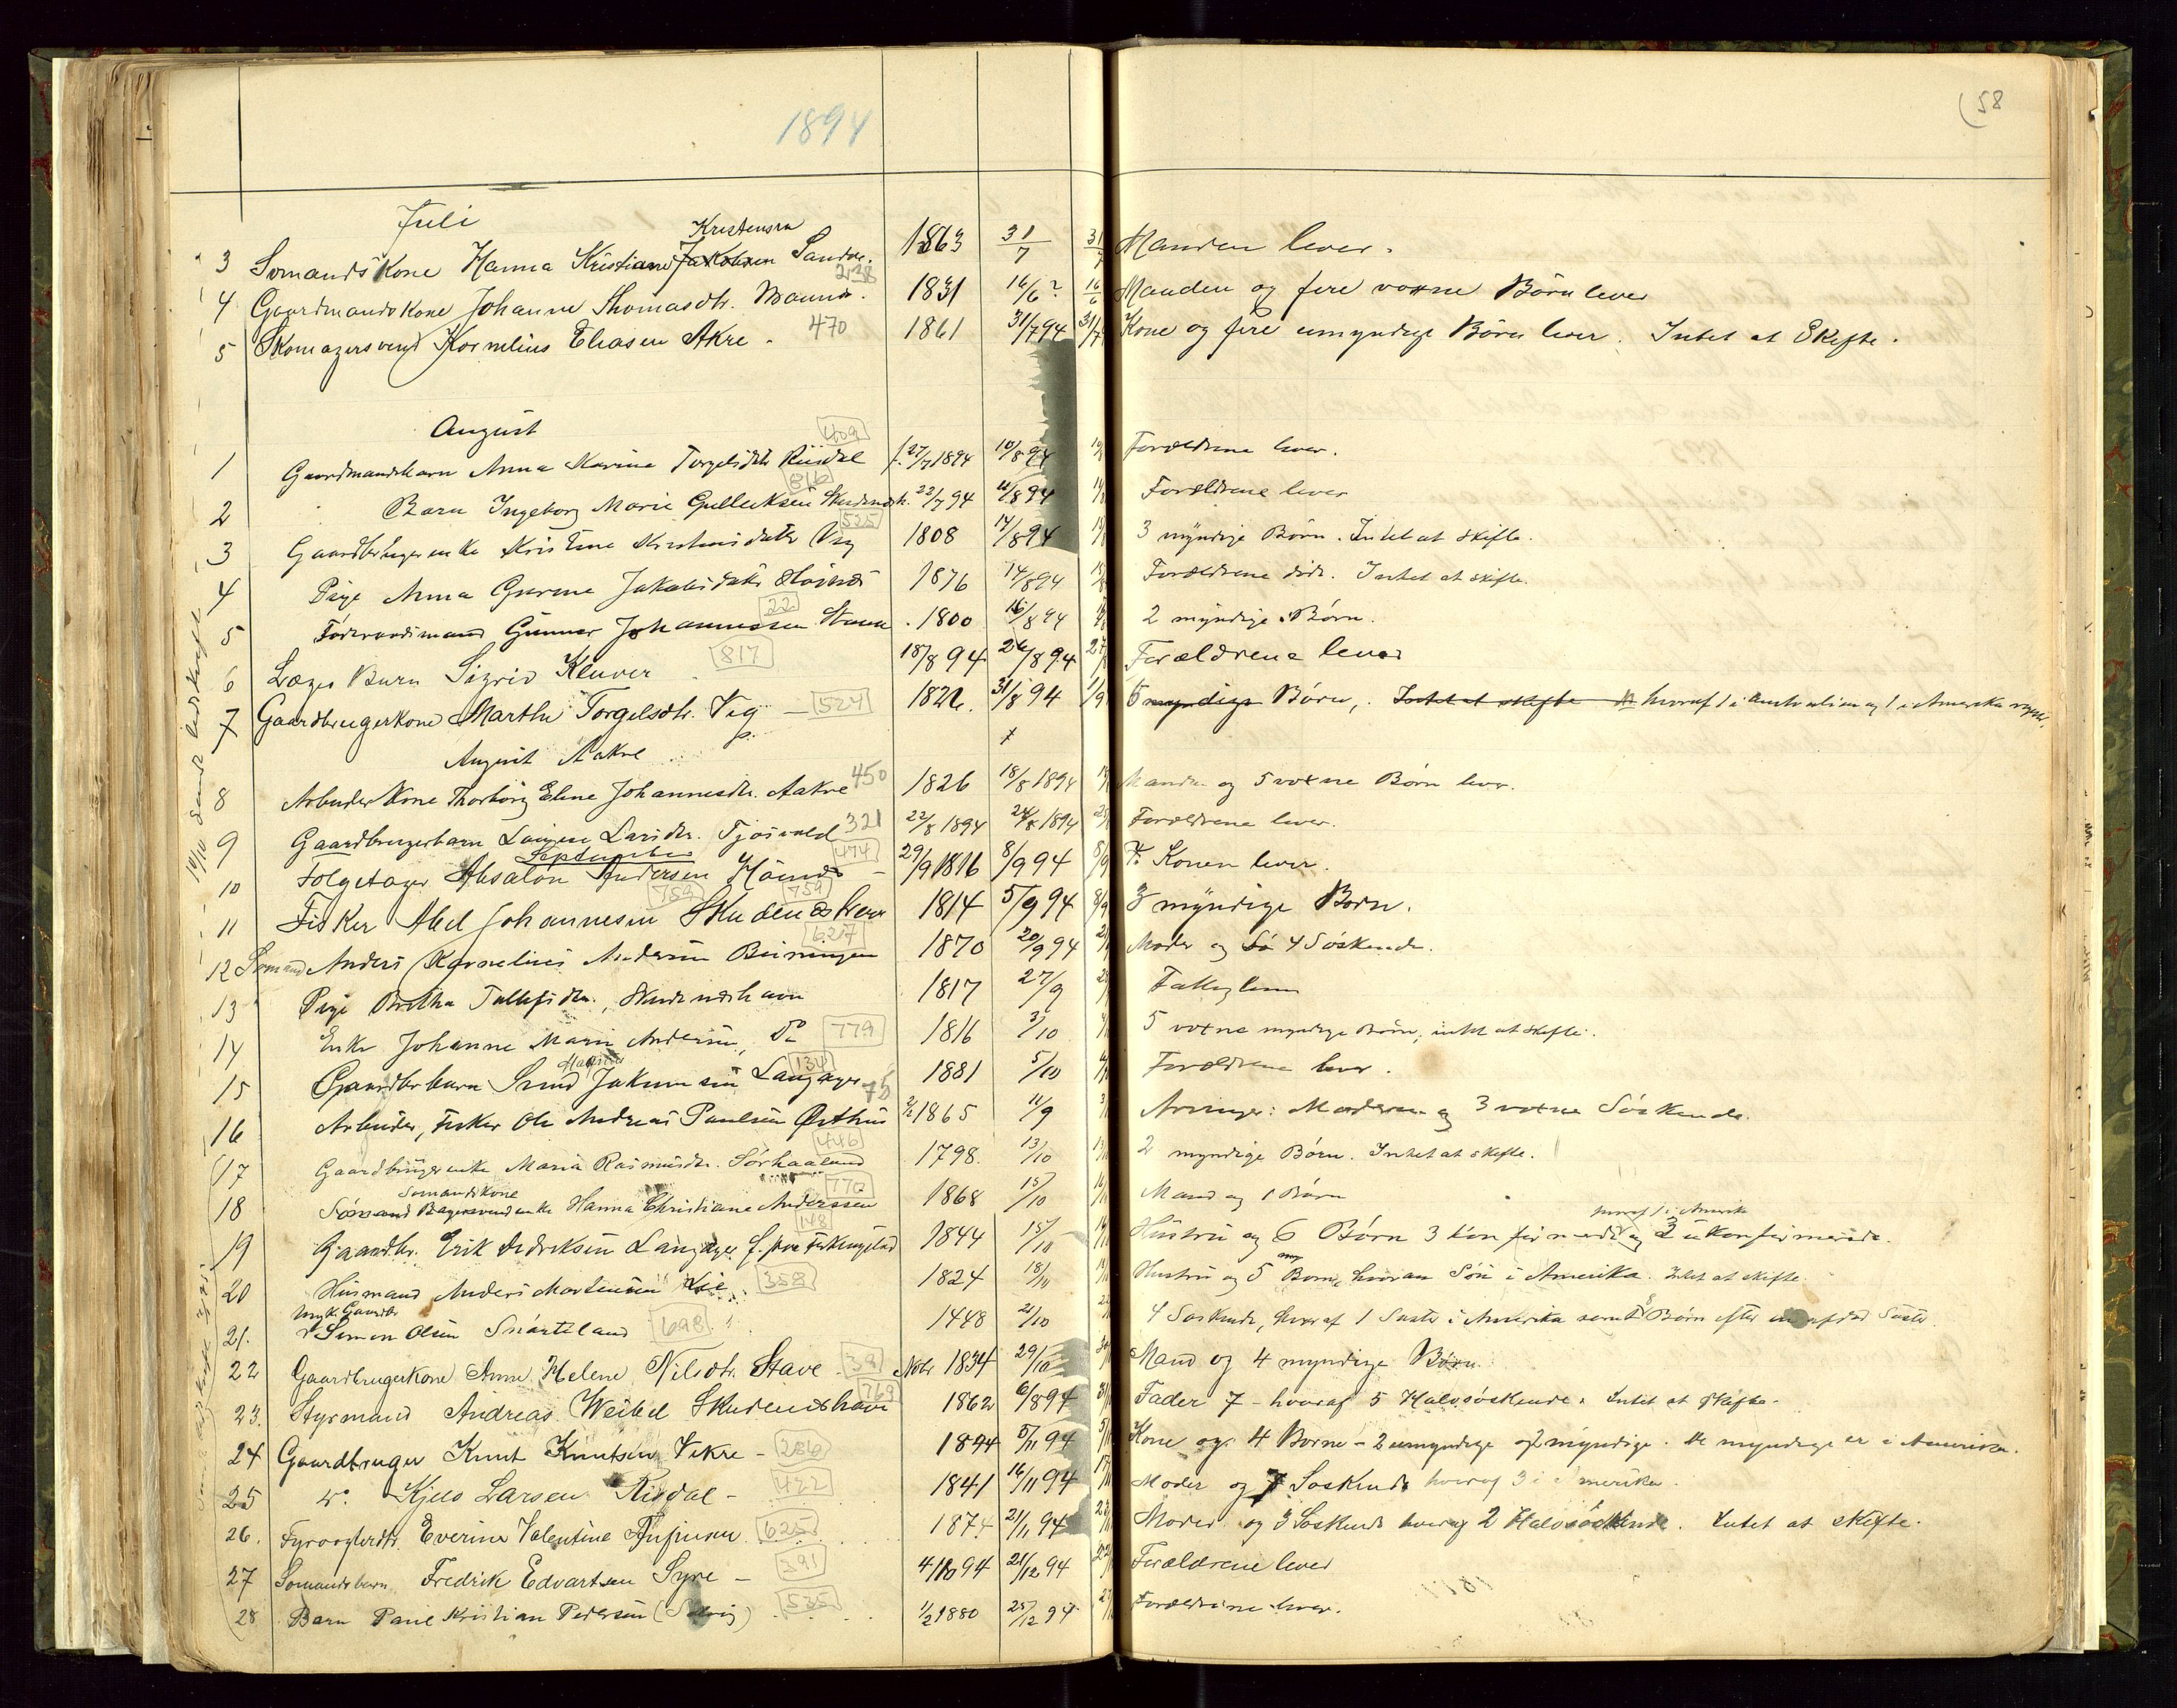 1894
58
Juli
Kristensen
3 Sømands Kone Hanna Kristiane Jakobsen Sandve. 1863 31/7 31/7 Manden lever.
238
4 Gaardmandskone Johanne Thomasdtr. 1831 16/6? 16/6 Manden og fire voxne Børn lever
5 Skomagersvend Kornelius Eliasen Akre. 470 1861 31/7 94 31/7 Kone og fire umyndige Børn lever. Intet at Skifte.
August
409
1 Gaardmandsbarn Anna Karine Torgelsdtr f. 27/7 1894 10/8 94 Forældrene lever.
816
2 Barn Ingeborg Marie Gulleksen Skudeneshn. 22/7 94 /8 94 Forældrene lever
525
3 Gaardbrugerenke Kristine Kristensdatter Vig 1808 14/8 94 3 myndige Børn. Intet at skifte.
4 Pige Anna Gurine Jakobsdatter 1876 14/8 94 Forældrene døde. Intet at skifte.
22
5 Føderaadsmand Gunnar Johannessen Stava. 1800 16/8 94 2 myndige Børn.
6 Læges Barn Sigrid Kluver 817 18/8 94 26/8 94 27/8 Forældrene lever
7 Gaardbrugerkone Marthe Torgelsdtr. Vig 524 1822. 31/8 94 1/9 6 myndige Børn, Intet at skifte hvoraf 1 i Australien og 1 i Amerika
August Aakre
8 Arbeider Kone Thorborg Eline Johannesdtr. Aakre 450 1826 18/8 1894 Manden og 5 voxne Børn lever.
9 Gaardbrugerbarn Larsdtr. Tjøsvold 321 22/8 1894 24/8 1894 Forældrene lever.
September
474
10 Følgetager Absalon Andersen 29/9 1816 8/9 94 8/9 Konen lever.
759 759
11 Fisker Abel Johannesen Skudeneshavn 1814 5/9 94 8/9 3 myndige Børn.
627
12 Sømand Anders Kornelius Andersen Beiningen 1870 20/9 94 Moder og Sø 4 Søskende.
13 Pige Britha Tollefsdtr., Skudeneshavn 1817 27/9 Fattiglem
14 Enke Johanne Marie Andersen, Do 779 1816 3/10 5 voxne myndige Børn, intet at skifte.
134
15 Gaardbrbarn Svend Jakobsen Langager 75 1881 5/10 Forældrene lever.
16 Arbeider, Fisker Ole Andreas Paulsen Østhus 1865 11/9 Arvinger: Moderen og 3 voxne Søskende.
446
17 Gaardbrugerenke Maria Rasmusdtr. Sørhaaland 1798. 13/10 2 myndige Børn. Intet at skifte.
Sømandskone 770
18 Sømand Bagersvendenke Hanna Christiane Anderssen 1868 15/10 Mand og 1 Børn
148 hvoraf 1 i Amerika
19 Gaardbr. Erik Andreas Langager f. paa Ferkingstad 1844 15/10 Hustru og 6 Børn 3 konfirmerede og 3 ukonfirmerede.
my
20 Husmand Anders Mortensen Lie 358 1824 18/10 Hustru og 5 Børn, hvoraf Søn i Amerika. Intet at skifte.
Ungk. Gaardbr
21. Simon Olsen Snørteland 698 1448 21/10 4 Søskende, hvoraf 1 Søster i Amerika samt 8 Børn efter en afdød Søster.
22 Gaardbrugerkone Anne Helene Nilsdtr. Stave 39 Nobr. 1834 29/10 Mand og 4 myndige Børn
769
23. Styrmand Andreas Weibel Skudeneshavn 1862 6/8 94 Fader 7 - hvoraf 5 Halvsøskende. Intet at skifte.
24 Gaardbruger Knut Knutsen Vikre - 286 1844 5/11 94 Kone og 4 Børne - 2 umyndige og 2 myndige. De myndige er i Amerika.
25 Do. Kjels Larsen Risdal - 422 1841 16/11 94 Moder og 7 Søskende hvoraf 3 i Amerika.
26. Fyrvogterdtr. Everine Valentine 625 1874 21/11 94 Moder og 3 Søskende hvoraf 2 Halvsøskende. Intet at skifte.
27 Sømandsbarn Fredrik Edvartsen Syre - 391 4/10 94 21/12 94 Forældrene lever
28 Barn Paul Kristian Pedersen (Solvig) 535 1/2 1880 25/12 94 Forældrene lever.